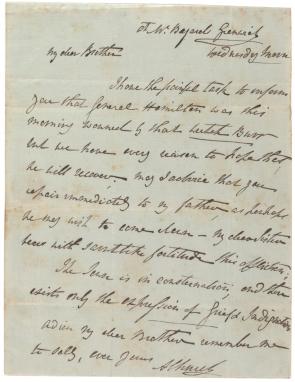 At Mr Bayards Greenwich
Wednesday Morn
My dear Brother
I have the painful task to inform
you that General Hamilton was this
morning wounded by that wretch Burr
but we have every reason to hope that
he will recover. May I advise that you
repair immediately to my father, as perhaps
he may wish to come down – My dear Sister
bears with saintlike fortitude this affliction.
The Town is in consternation, and there
exists only the expression of Grief & Indignation
adieu my dear Brother remember me
to Sally, ever yours
A Church